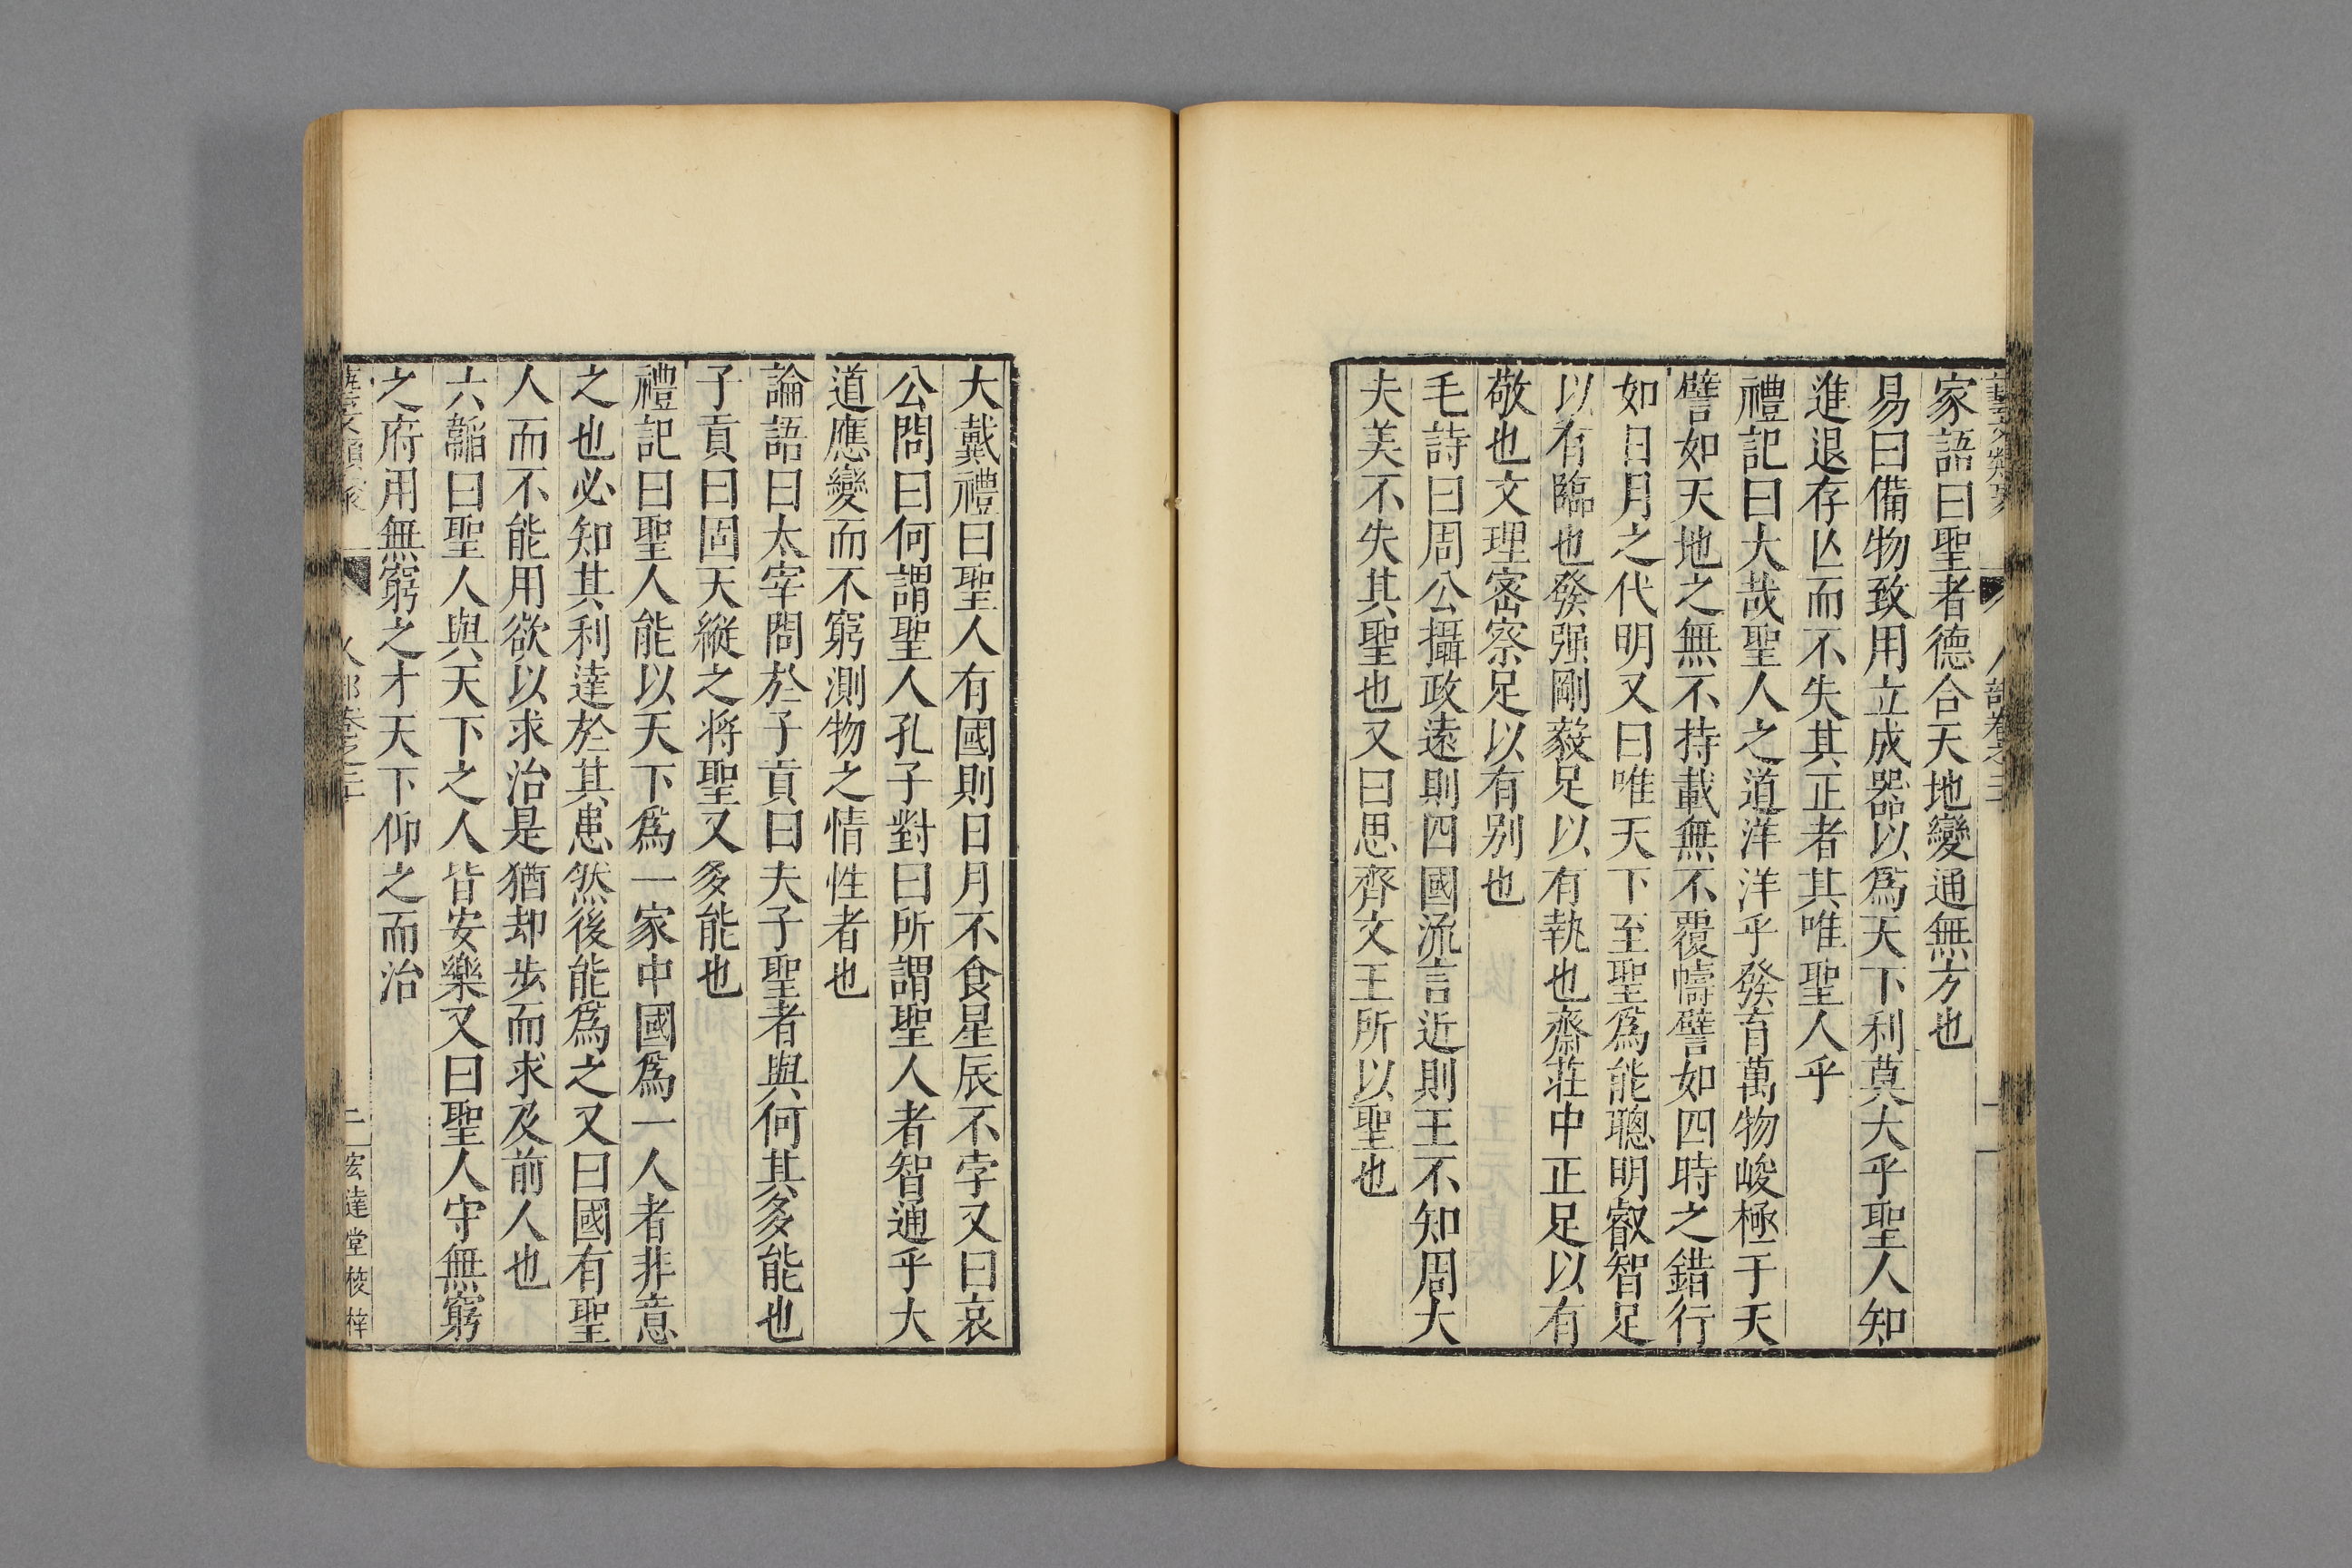 家語曰聖者德合天地變通無方也
易曰備物致用立成器以為天下利莫大乎聖人知
進退存亾而不失其正者其唯聖人乎
禮記曰大哉聖人之道洋洋乎發育萬物峻極于天
譬如天地之無不持載無不覆幬譬如四時之錯行
如日月之代明又曰唯天下至聖為能聰明叡智足
以有臨也發强剛毅足以有執也齋莊中正足以有
敬也文理密察足以有別也
毛詩曰周公攝政遠則四國流言近則王不知周大
夫美不失其聖也又曰思齊文王所以聖也
大戴禮曰聖人有國則日月不食星辰不孛又曰哀
公問曰何謂聖人孔子對曰所謂聖人者智通乎大
道應變而不窮測物之情性者也
論語曰太宰問於子貢曰夫子聖者與何其多能也
子貢曰固天縱之將聖又多能也
禮記曰聖人能以天下為一家中國為一人者非意
之也必知其利達於其患然後能為之又曰國有聖
人而不能用欲以求治是猶却步而求及前人也
六韜曰聖人與天下之人皆安樂又曰聖人守無窮
之府用無窮之才天下仰之而治
二 宏達堂校梓